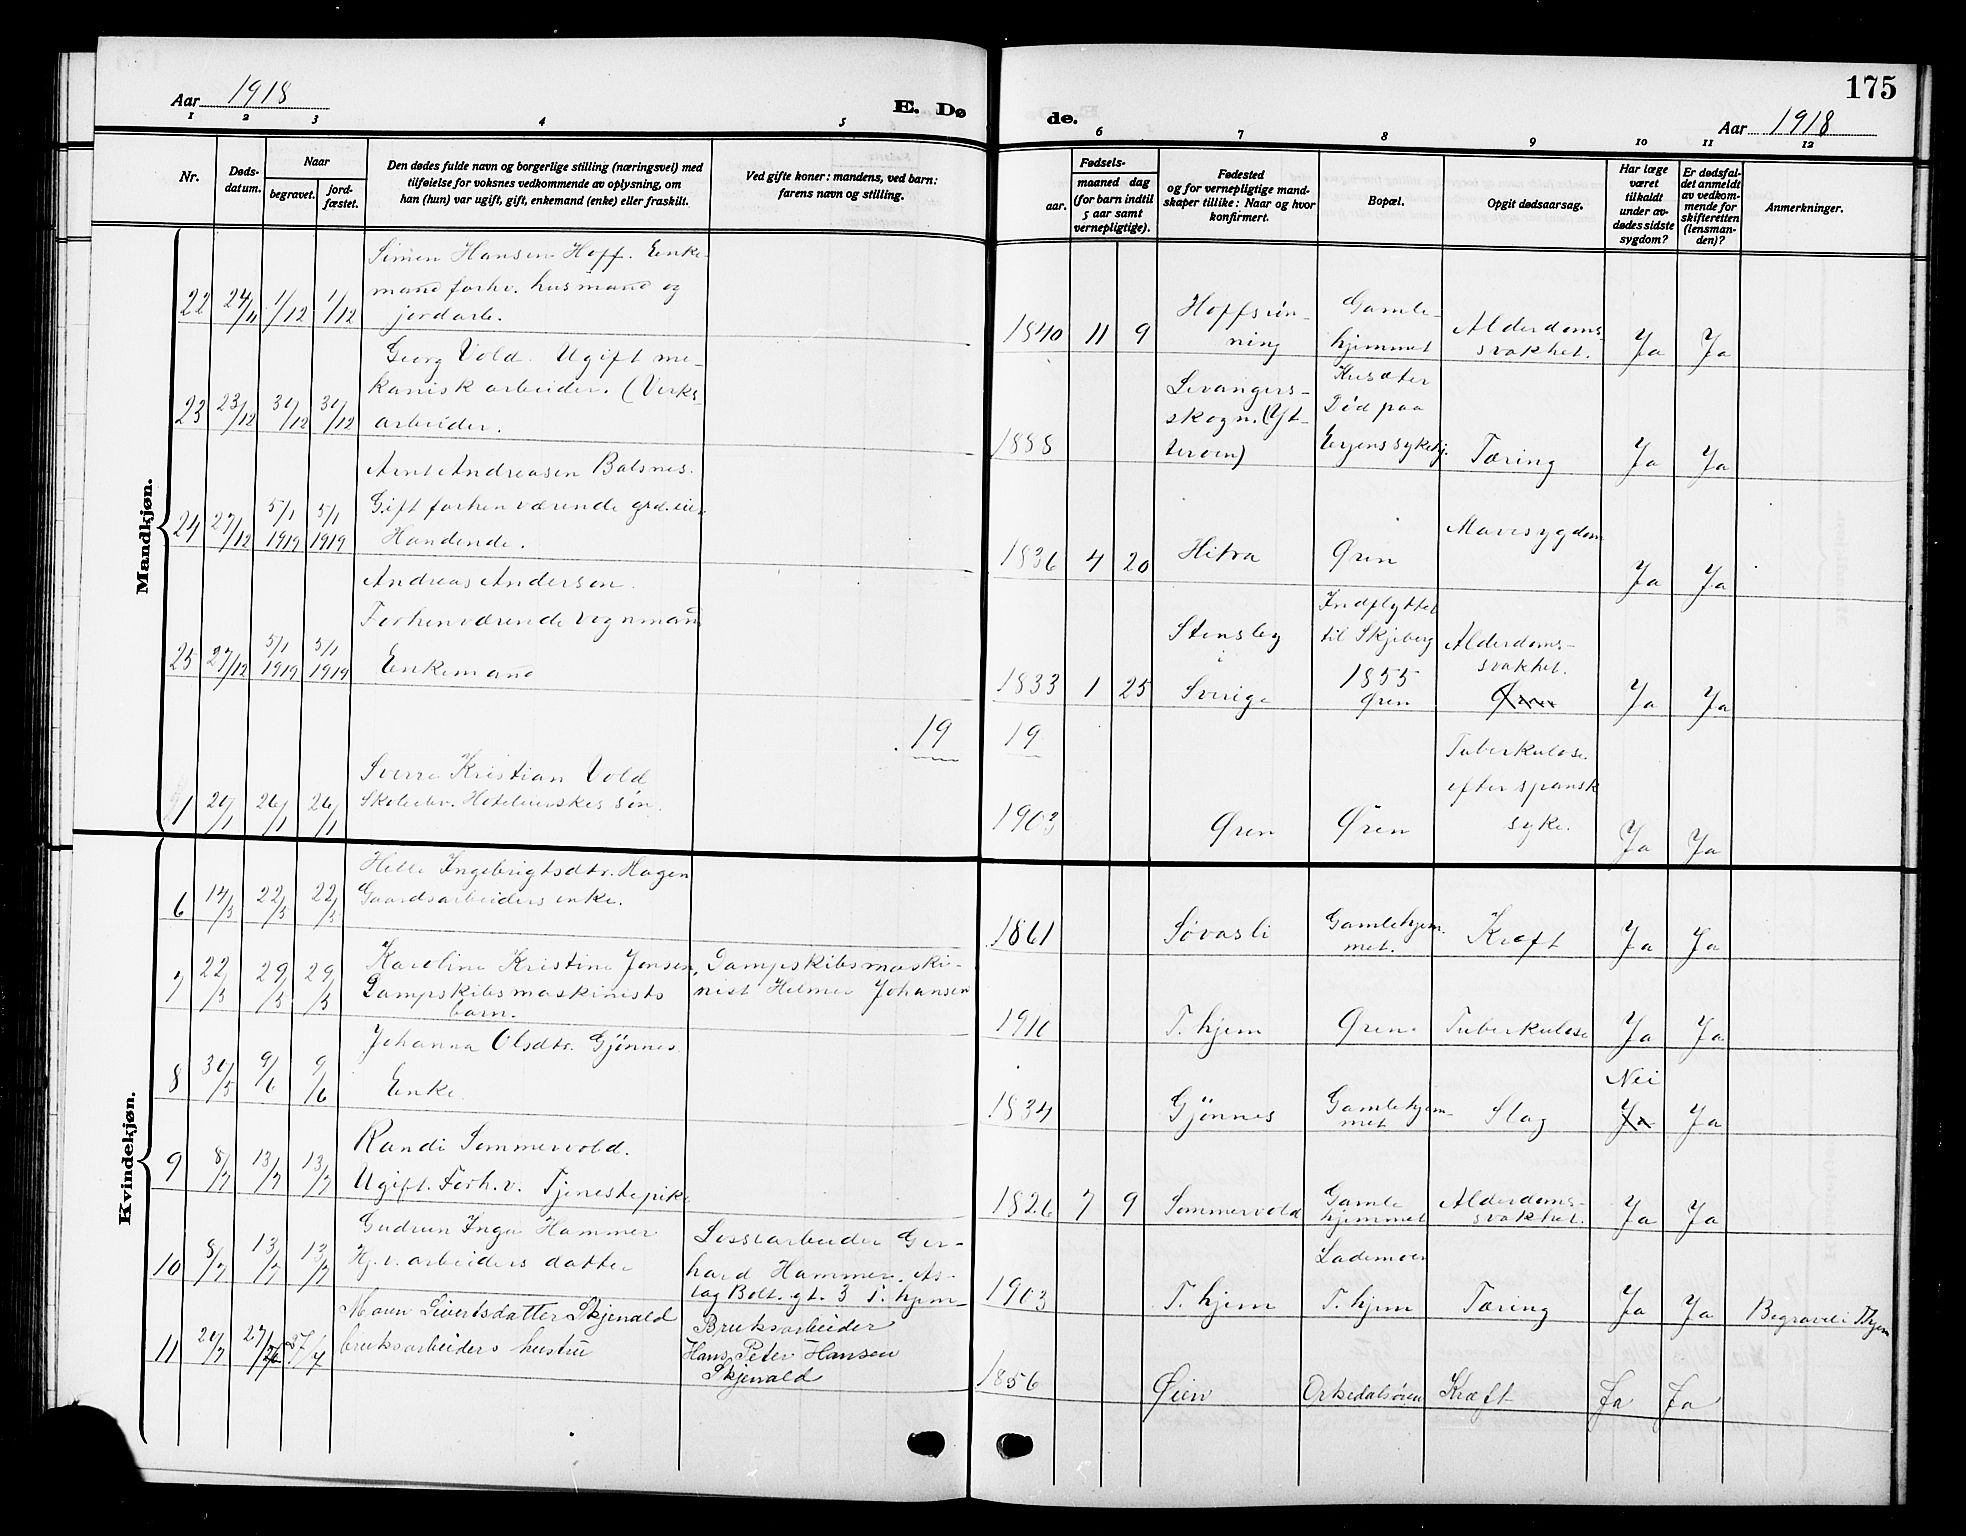 Aar 1918
E. Dø
1 2 3 4 5
Nr.
Døds-
datum.
Naar
begravet.
jord-
fæstet.
Den dødes fulde navn og borgerlige stilling (næringsvei) med
tilføielse for voksnes vedkommende av oplysning, om
han (hun) var ugift, gift, enkemand (enke) eller fraskilt.
Ved gifte koner: mandens, ved barn:
farens navn og stilling.
Mandkjøn.
Simen Hansen Hoff. Enke-
mand forhv. husmand og
22 24/11 1/12 1/12 jordarb.
Georg Vold. Ugift me-
kanisk arbeider. (Verks-
23 23/12 30/12 30/12 arbeider.
Arnt Andreasen Balsnes.
Gift forhenværende grd.eier
24 27/12 5/1 1919 5/1 1919
Andreas Anderson.
Forhenværende vognmand
25 27/12 5/1 1919 5/1 1919 Enkemand
19
Sverre Kristian Vold
1 20/1 26/1 26/1 Skoleelev. Hoteleierskes søn.
Kvindekjøn.
Ingebrigtsdtr. Hagen
6 14/5 22/5 22/5 Gaardsarbeiders enke.
Karoline Kristine Jensen, Dampskibsmaski-
7 22/5 29/5 29/5 Dampskibsmaskinists nist Helmer Johansen
barn.
Johanna Olsdtr. Gjønnes.
8 30/5 9/6 9/6 Enke.
Randi Sommervold.
9 8/7 13/7 13/7 Ugift. Forh.v. Tjenestepike
Gudrun Inga Hammer Lossearbeider Ger-
10 8/7 13/7 13/7 Hj.v. arbeiders datter hard Hammer. As-
lag Bolt. gt. 3 T. hjem
Sivertsdatter Skjenald Bruksarbeider
11 20/7 27/7 bruksarbeiders hustru Hans Peter Hansen
Skjenald
175
de.
Aar 1918
6 7 8 9 10 11 12
Fødsels-
aar.
maaned dag
(for barn indtil
5 aar samt
vernepligtige).
Fødested
og for vernepligtige mand-
skaper tillike: Naar og hvor
konfirmert.
Bopæl.
Opgit dødsaarsag.
Har læge
været
tilkaldt
under av-
dødes sidste
sygdom?
Er dødsfal-
det anmeldt
av vedkom-
mende for
skifteretten
(lensman-
den)?
Anmerkninger.
Hoffsrøn- Gamle- Alderdoms-
1840 11 9 ning hjemmet svakhet. Ja Ja
Levangers-
skogn. (Yt- Død paa
1888 terøen) sykehj. Tæring Ja Ja
1836 4 20 Hitra Øren Mavesygdom Ja Ja
Indflyttet
Stensby til Skjeberg Alderdoms-
i 1855 svakhet.
1833 1 25 Sverige Øren Øren Ja Ja
19
Tuberkulose
efter spansk
1903 Øren Øren syke. Ja Ja
1861 Søvasli Gamlehjem-
met. Kræft Ja Ja
1910 T. hjem Øren Tuberkulose Ja Ja
Nei
1834 Gjønnes Gamlehjem-
met Slag Ja Ja
1826 7 9 Sommervold Gamle Alderdoms-
hjemmet svakhet. Ja Ja
Lademoen
1903 T. hjem T. hjem Tæring Ja Ja Begravet i Thjem
1856 Øien Orkedalsøren Kræft Ja Ja